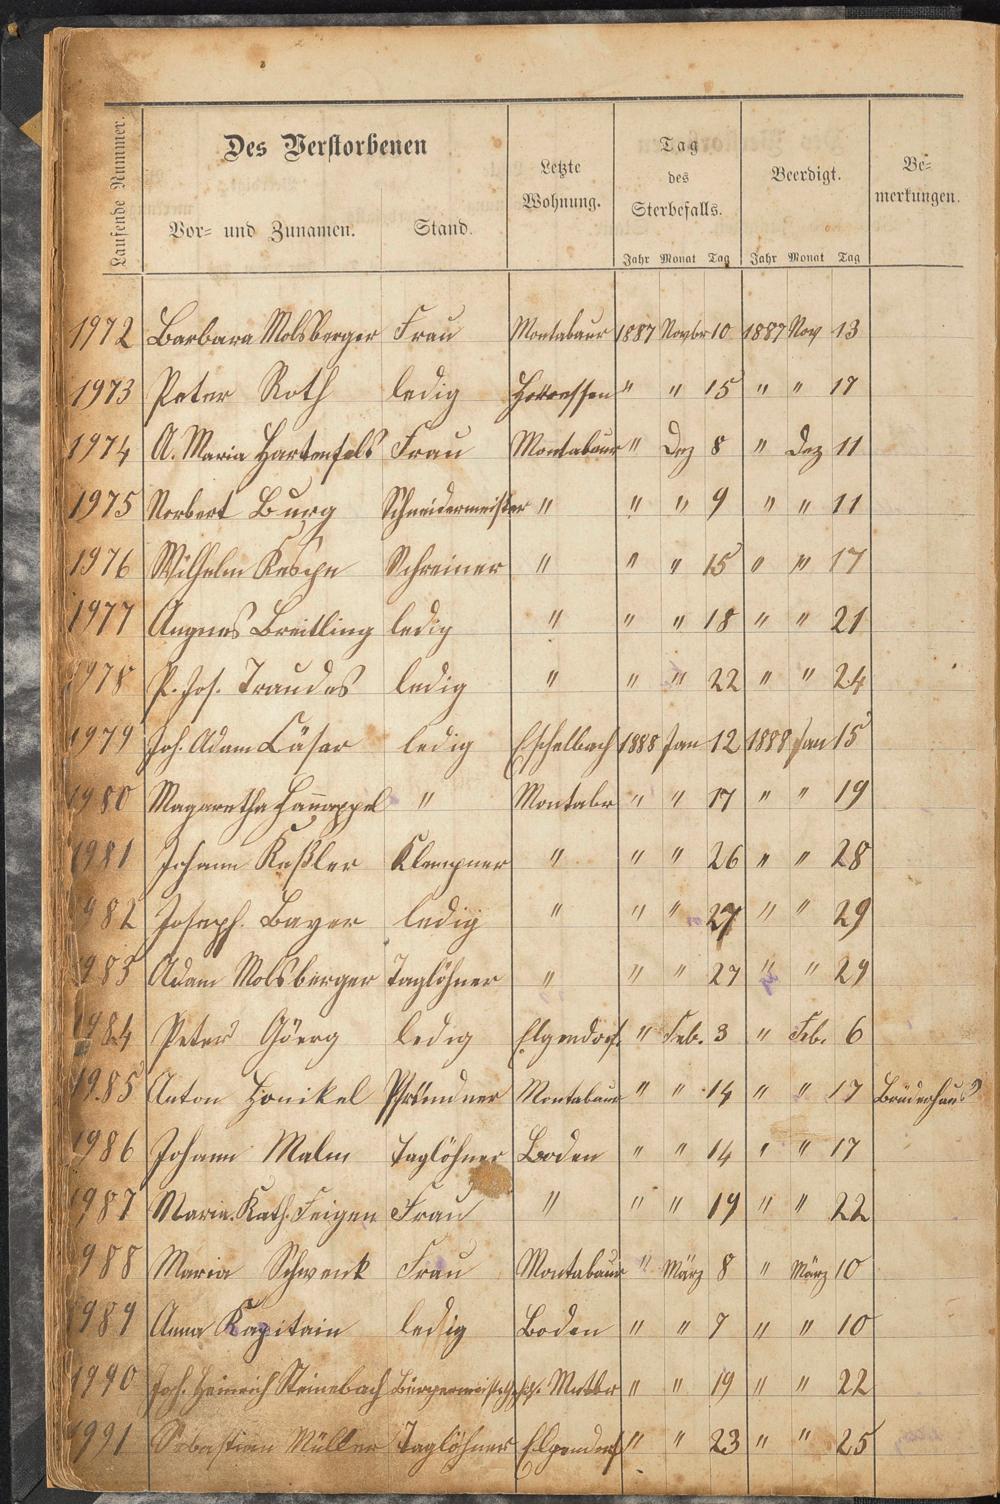 Laufende Nummer.
Des Verstorbenen
Vor- und Zunamen. Stand.
Letzte Wohnung.
Tag des Sterbefalls.
Jahr Monat Tag
Beerdigt.
Jahr Monat Tag
Bemerkungen.
1972 Barbara Molsberger Frau Montabaur 1887 Novbr 10 1887 Nov 13
1973 Peter Roth ledig Horressen " " 15 " " 17
1974 A. Maria Hartenfels Frau Montabaur " Dez 8 " Dez 11
1975 Norbert Burg Schneidermeister " " " 9 " " 11
1976 Wilhelm Schreiner " " " 15 " " 17
1977 Angnes Breitling ledig " " " 18 " " 21
1978 P. Jos. Traudes ledig " " " 22 " " 24
1979 Joh. Adam Cäsar ledig Eschelbach 1888 Jan 12 1888 Jan 15
1980 Magaretha Hanappel " Montabr " " 17 " " 19
1981 Johann Keßler Klempner " " " 26 " " 28
1982 Joseph. Bayer ledig " " " 27 " " 29
1983 Adam Molsberger Taglöhner " " " 27 " " 29
1984 Peter Görg ledig Elgendorf. " Feb. 3 " Feb. 6
1985 Anton Honikel Pfründner Montabaur " " 14 " " 17 Brüderhaus
1986 Johann Malm Taglöhner Boden " " 14 " " 17
1987 Maria. Kath. Feigen Frau " " " 19 " " 22
1988 Maria Schwenk Frau Montabaur " März 8 " März 10
1989 Anna Kapitain ledig Boden " " 7 " " 10
1990 Joh. Heinrich Steinebach " " 19 " " 22
1991 Sebastian Müller Taglöhner Elgendorf " " 23 " " 25